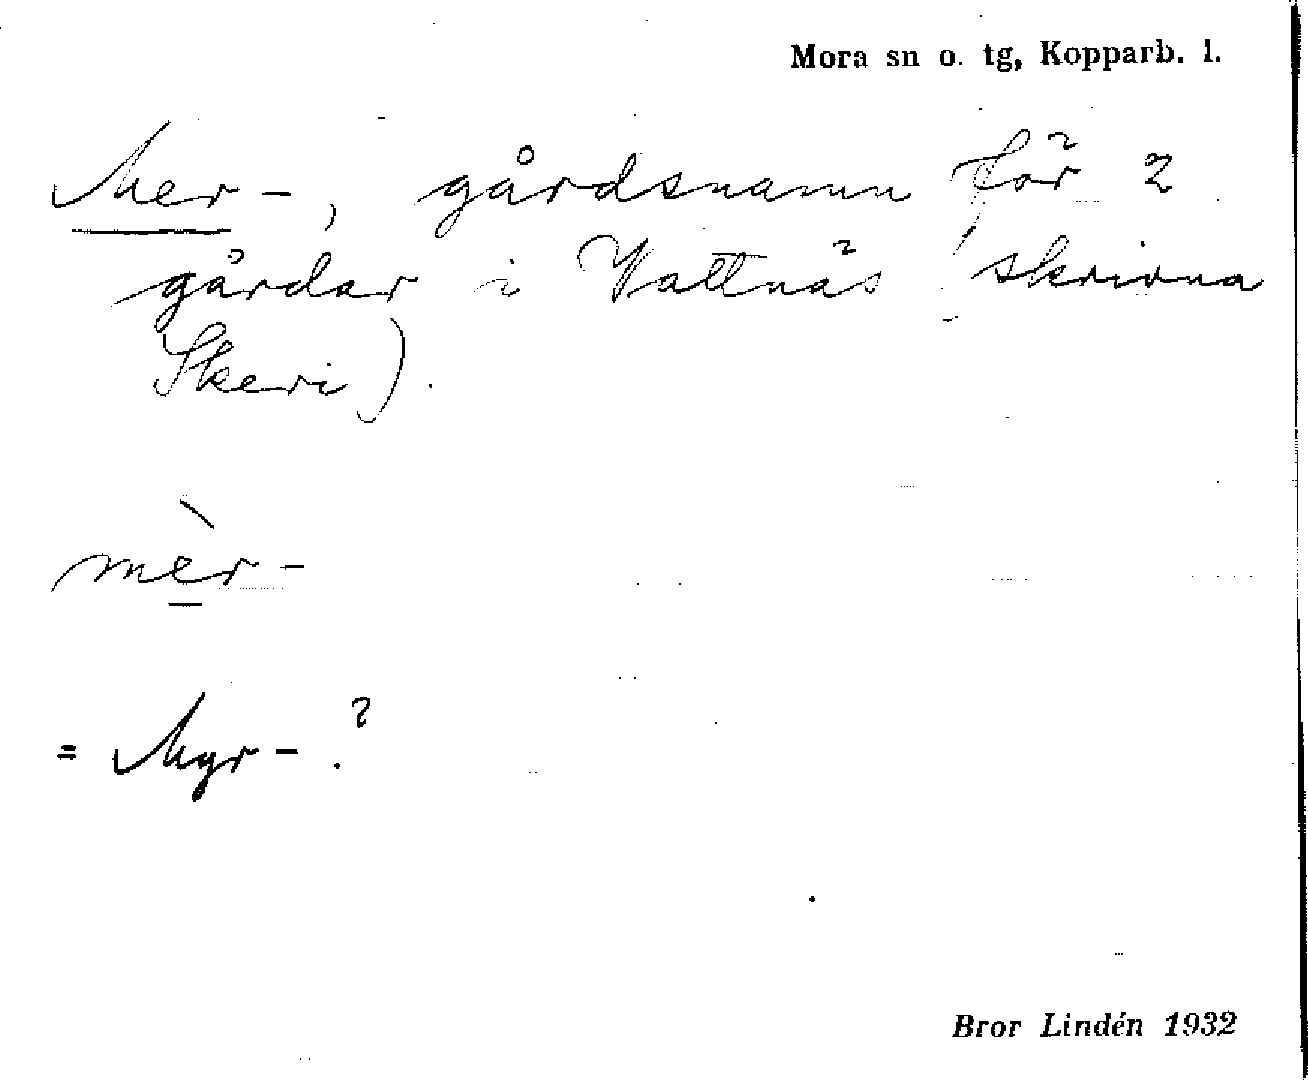 Mora sn o. tg, Kopparb. l.
Mer-, gårdsnamn för 2
gårdar i Vattnäs (skrivna
Skeri).
mèr-
= Myr-?
Bror Lindén 1932